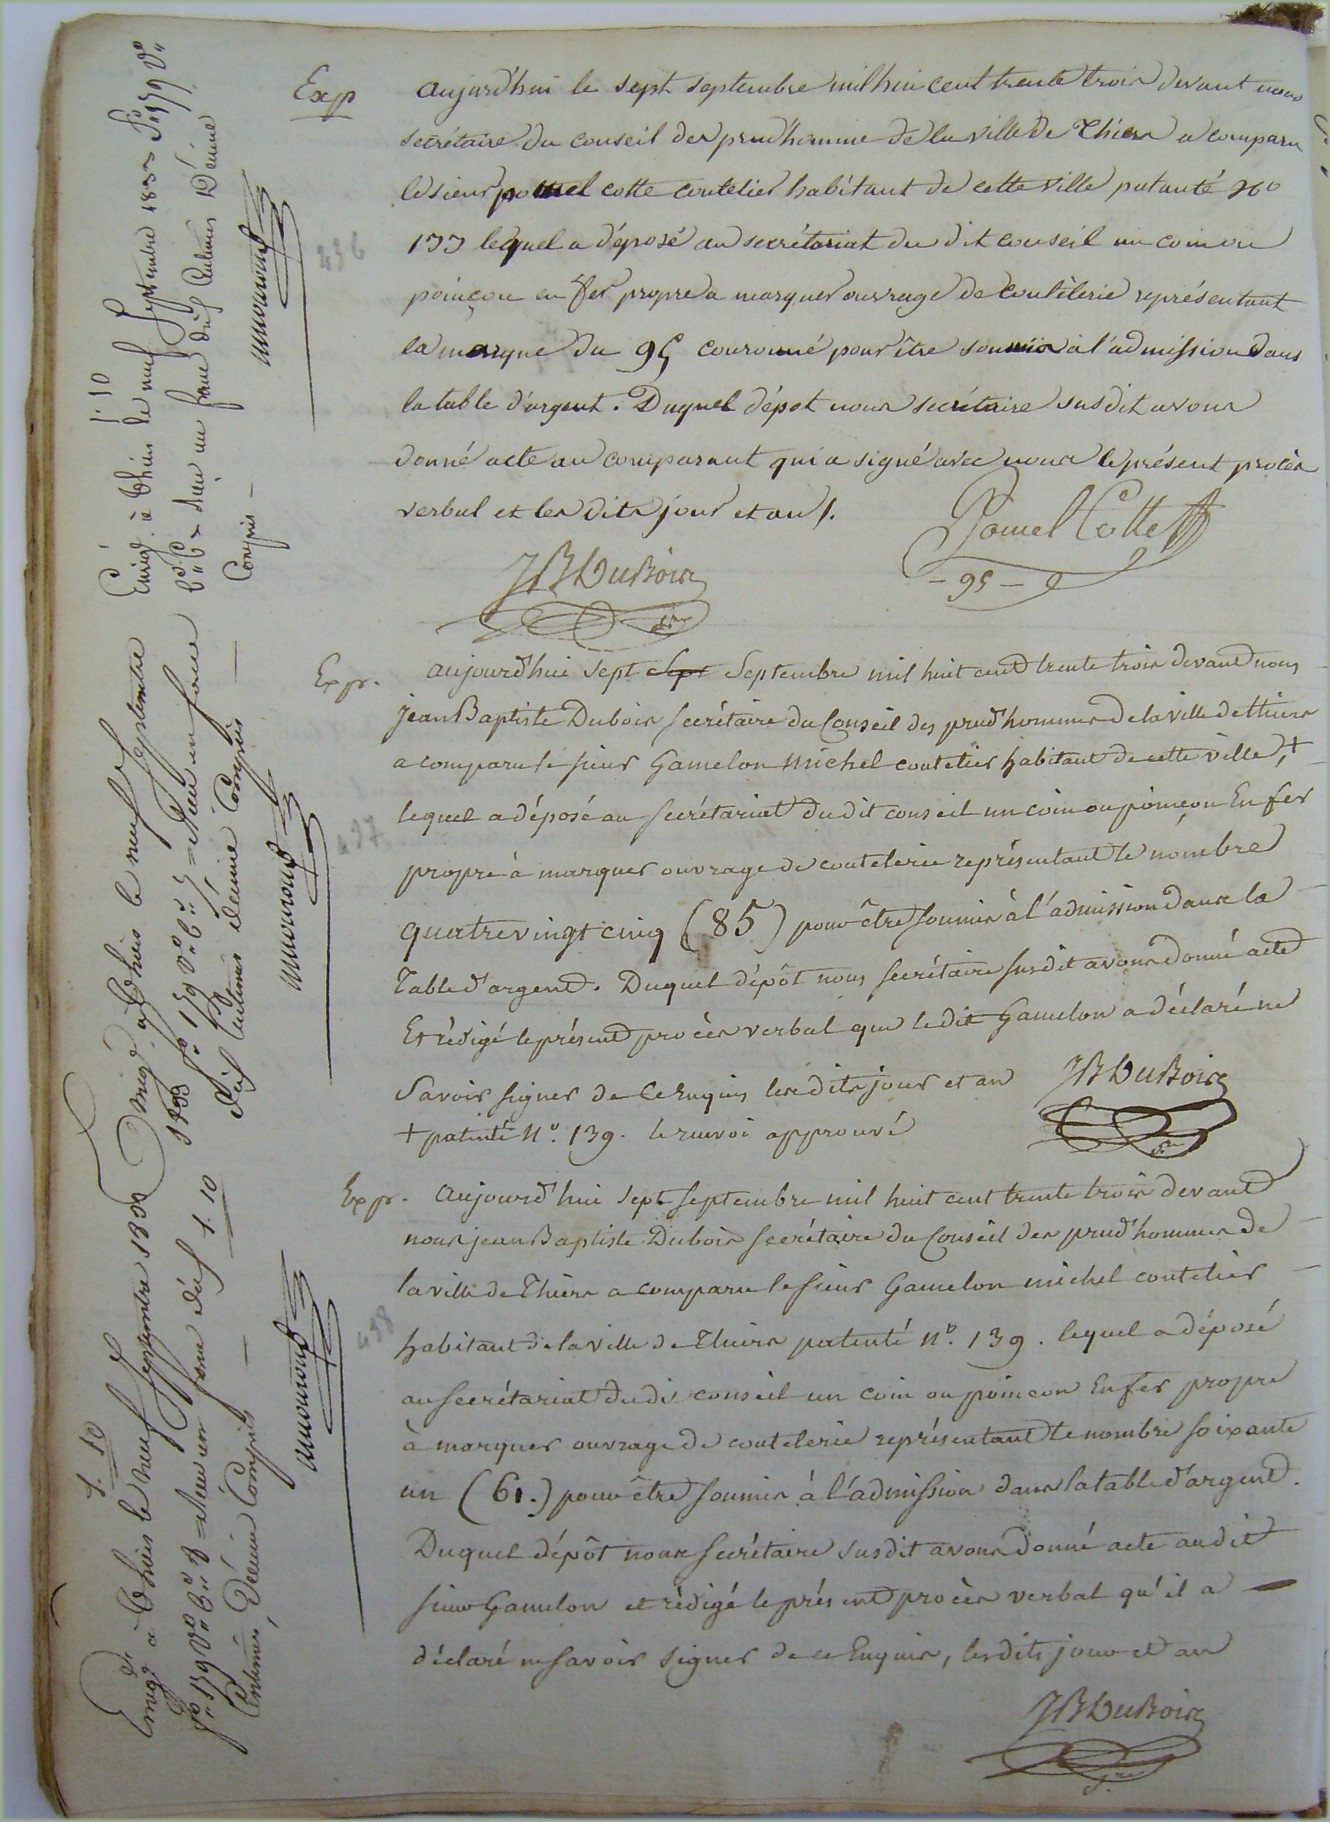 Exp
aujourd'hui le sept septembre mil huit cent trente trois devant nous
secrétaire du conseil des prud'homme de la ville de Thiers a comparu
le sieur pomel cotte coutelier habitant de cette ville patanté No
177 lequel a déposé au secrétariat du dit conseil un coin ou
poinçon en fer propre a marquer ouvrage de coutèlerie représentant
la marque du 95 couronné pour être soumis a l'admission dans
la table d'argent. Duquel dépot nous secrétaire susdit avons
donné acte au comparant qui a signé avec nous le présent procès
verbal et les dits jour et an /.
Pomel Cotte
- 95 -
JB Dubois
436
Expr.
aujourd'hui sept sept Septembre mil huit cent trente trois devant nous
jean Baptiste Dubois secrétaire du Conseil des prud'hommes de la ville de thiers
a comparu le sieur Gamelon michel coutelier habitant de cette ville, +
lequel a déposé au secrétariat du dit conseil un coin ou poinçon En fer
propre à marquer ouvrage de coutelerie représentant le nombre
quatrevingt cinq (85) pour être soumis à l'admission dans la
Table d'argent. Duquel dépôt nous secrétaire susdit avons donné acte
Et rédigé le présent procès verbal que le dit Gamelon a déclaré ne
Savoir signer de ce Enquis les dits jour et an
JB Dubois
+ patenté No. 139. le renvoi approuvé
437
Expr.
aujourd'hui sept septembre mil huit cent trente trois devant
nous jean Baptiste Dubois secrétaire du Conseil des prud'hommes de
la ville de Thiers a comparu le sieur Gamelon michel coutelier
habitant de la ville de Thiers patenté No. 139. lequel a déposé
au secrétariat du di conseil un coin ou poincon En fer propre
à marquer ouvrage de coutelerie représentant le nombre soixante
un (61.) pour être soumis à l'admission dans la table d'argent.
Duquel dépôt nous secrétaire susdit avons donné acte au dit
sieur Gamelon et rédigé le présent procès verbal qu'il a
déclaré ne savoir signer de ce Enquis, les dits jour et an
JB Dubois
438
1. 10
Enregé. à thiers le neuf septembre 1833 fo 159 Vo
Reçu un franc dix centimes Décime
Compris
Enregé. a thiers le neuf septembre
1833 fo 159 Vo Reçu un franc
dix centimes décime Compris
1. 10
1. 10
Enregé. à thiers le neuf septembre 1833
fo 159 Vo Reçu un franc dix
Centimes, Décime Compris